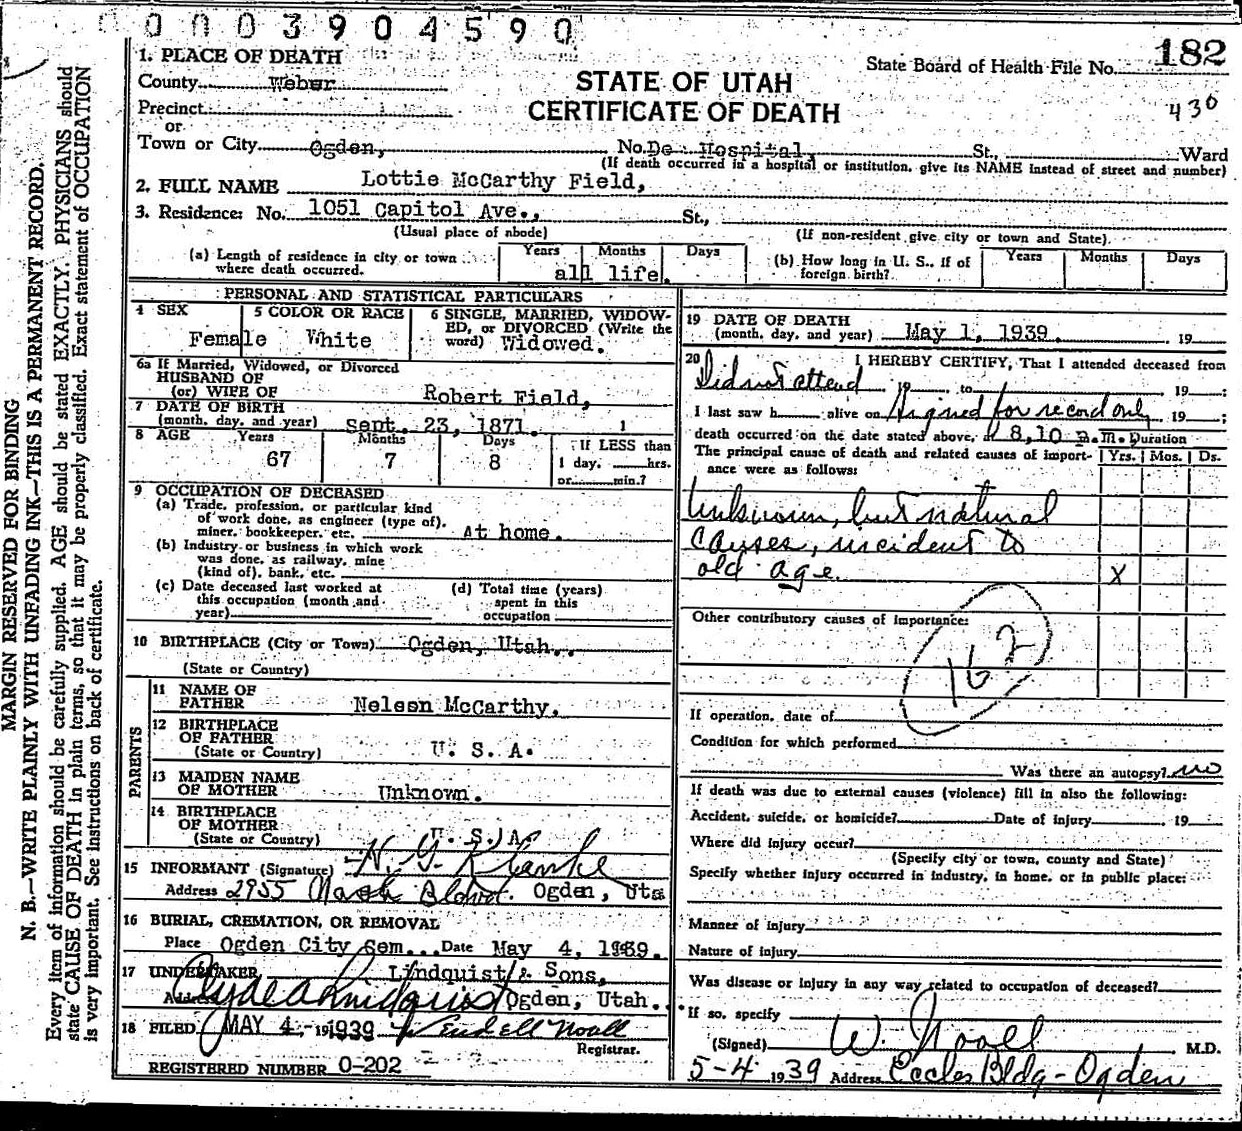 0003904590
182
1. PLACE OF DEATH
State Board of Health File No.
County Weber
STATE OF UTAH
430
Precinct
CERTIFICATE OF DEATH
or
Town or City Ogden, No. De Hospital, St., Ward
(If death occurred in a hospital or institution, give its NAME instead of street and number)
2. FULL NAME Lottie McCarthy Field,
3. Residence: No. 1051 Capitol Ave., St.,
(Usual place of abode) (If non-resident give city or town and State)
(a) Length of residence in city or town where death occurred. Years Months Days
all life.
(b) How long in U. S., if of foreign birth? Years Months Days
PERSONAL AND STATISTICAL PARTICULARS
4 SEX Female
5 COLOR OR RACE White
6 SINGLE, MARRIED, WIDOWED, or DIVORCED (Write the word) Widowed.
6a If Married, Widowed, or Divorced
HUSBAND OF
(or) WIFE OF Robert Field,
7 DATE OF BIRTH
(month, day, and year) Sept. 23, 1871. 1
8 AGE Years Months Days If LESS than
67 7 8 1 day, hrs.
or min.?
9 OCCUPATION OF DECEASED
(a) Trade, profession, or particular kind
of work done, as engineer (type of),
miner, bookkeeper, etc. At home.
(b) Industry or business in which work
was done, as railway, mine
(kind of), bank, etc.
(c) Date deceased last worked at
this occupation (month and
year)
(d) Total time (years)
spent in this
occupation
10 BIRTHPLACE (City or Town) Ogden, Utah.
(State or Country)
PARENTS
11 NAME OF
FATHER Nelson McCarthy.
12 BIRTHPLACE
OF FATHER
(State or Country) U. S. A.
13 MAIDEN NAME
OF MOTHER Unknown.
14 BIRTHPLACE
OF MOTHER
(State or Country) U. S. A.
15 INFORMANT (Signature) N. G.
Address 2955 Wash Blvd. Ogden, Uta
16 BURIAL, CREMATION, OR REMOVAL
Place Ogden City Cem. Date May 4, 1939.
17 UNDERTAKER, Lindquist & Sons,
Address Clyde A Lindquist Ogden, Utah.
18 FILED MAY 4 - 19 1939 Wendell Noall
Registrar.
REGISTERED NUMBER 0-202
19 DATE OF DEATH
(month, day, and year) May 1, 1939. 19
20 I HEREBY CERTIFY, That I attended deceased from
Did not attend 19 to 19 ;
I last saw h alive on Signed for record only 19 ;
death occurred on the date stated above, at 8,10 P.M. Duration
The principal cause of death and related causes of import- Yrs. Mos. Ds.
ance were as follows:
Unknown, but natural
causes, incident to
old age. X
Other contributory causes of importance:
162
If operation, date of
Condition for which performed
Was there an autopsy? no
If death was due to external causes (violence) fill in also the following:
Accident, suicide, or homicide? Date of injury 19
Where did injury occur?
(Specify city or town, county and State)
Specify whether injury occurred in industry, in home, or in public place:
Manner of injury
Nature of injury
Was disease or injury in any way related to occupation of deceased?
If so, specify
(Signed) W. Noall M.D.
5-4 1939 Address Eccles Bldg - Ogden
MARGIN RESERVED FOR BINDING
N. B.—WRITE PLAINLY WITH UNFADING INK—THIS IS A PERMANENT RECORD.
Every item of information should be carefully supplied. AGE should be stated EXACTLY. PHYSICIANS should
state CAUSE OF DEATH in plain terms, so that it may be properly classified. Exact statement of OCCUPATION
is very important. See instructions on back of certificate.